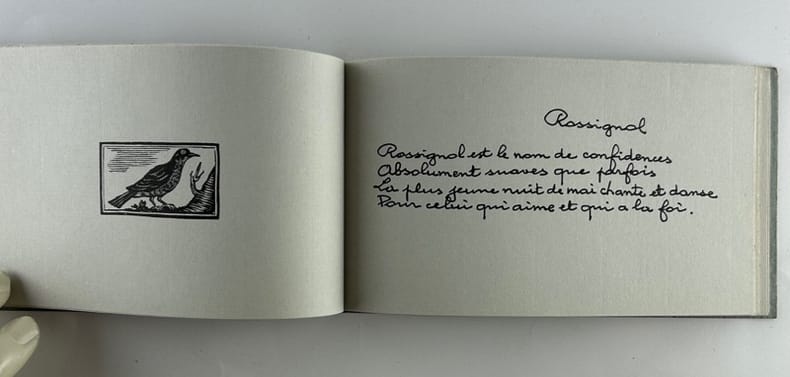 Rossignol
Rossignol est le nom de confidences
Absolument suaves que parfois
La plus jeune nuit de mai chante et danse
Pour celui qui aime et qui a la foi.